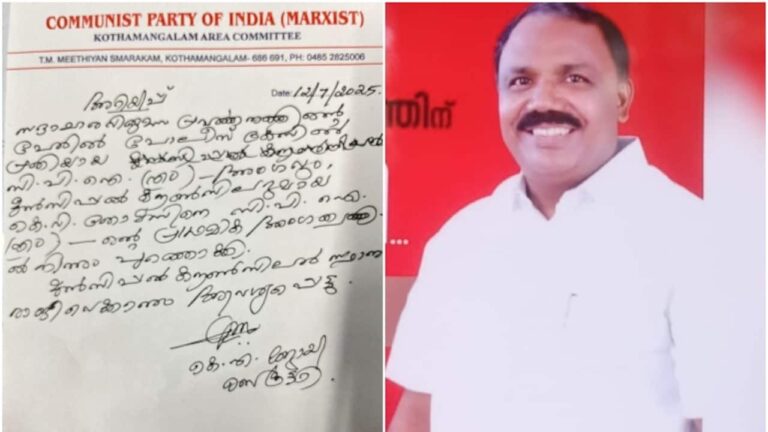 COMMUNIST PARTY OF INDIA (MARXIST)
KOTHAMANGALAM AREA COMMITTEE
T.M. MEETHIYAN SMARAKAM, KOTHAMANGALAM- 686 691, PH: 0485 2825006
Date: 12/7/2025
അറിയിപ്പ്
പേരിൽ പോലീസ് കേസിൽ
പ്രതിയായ
സി.പി.ഐ.(എം) – അംഗവും,
മുൻസിപ്പൽ കൗൺസിലറുമായ
കെ.വി. തോമസിനെ സി.പി.ഐ.
(എം) – ന്റെ പ്രാഥമിക അംഗത്വത്തി
ൽ നിന്നും പുറത്താക്കി.
മുൻസിപ്പൽ കൗൺസിലർ സ്ഥാനം
രാജിവെക്കാനും ആവശ്യപ്പെട്ടു.
കെ.എ. ജോയി
സെക്രട്ടറി
ത്തിന്
...